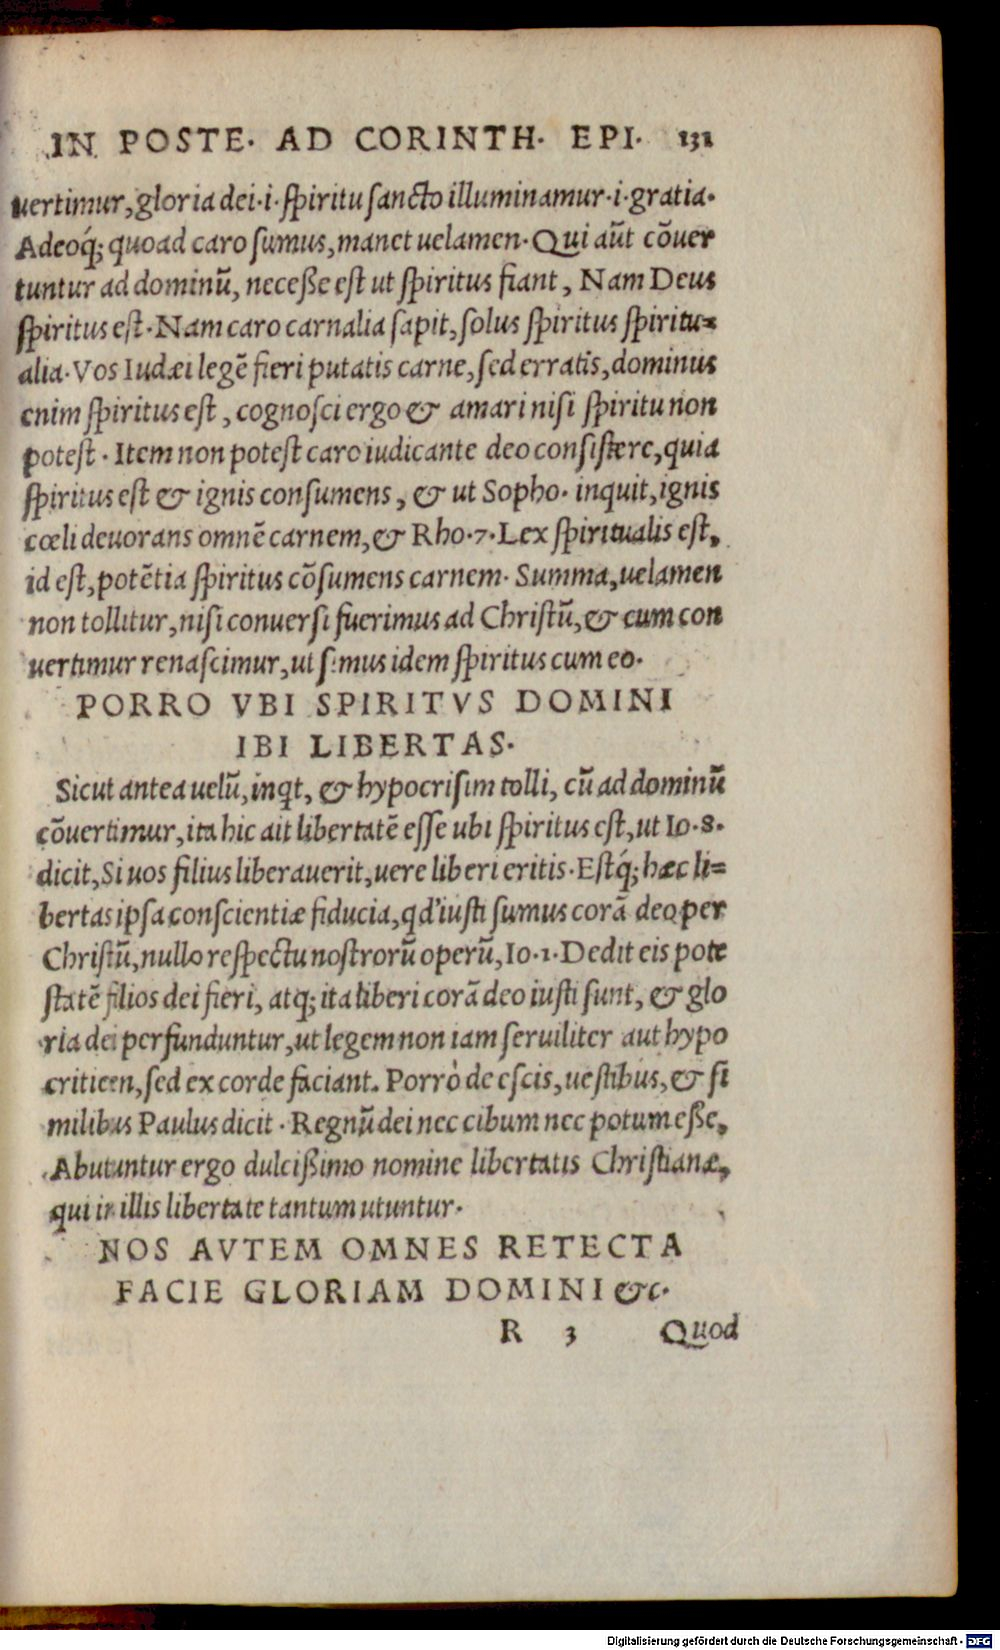 IN POSTE. AD CORINTH. EPI. 131
uertimur, gloria dei.i. spiritu sancto illuminamur.i.gratia.
Adeoq́; quoad caro sumus, manet uelamen. Qui aūt cōuer
tuntur ad dominū, neceße est ut spiritus fiant, Nam Deus
spiritus est. Nam caro carnalia sapit, solus spiritus spiritu=
alia. Vos Iudæi legē fieri putatis carne, sed erratis, dominus
enim spiritus est, cognosci ergo & amari nisi spiritu non
potest. Item non potest caro iudicante deo consistere, quia
spiritus est & ignis consumens, & ut Sopho. inquit, ignis
cœli deuorans omnē carnem, & Rho.7. Lex spiritualis est,
id est, potētia spiritus cōsumens carnem. Summa, uelamen
non tollitur, nisi conuersi fuerimus ad Christū, & cum con
uertimur renascimur, ut simus idem spiritus cum eo.
PORRO VBI SPIRITVS DOMINI
IBI LIBERTAS.
Sicut antea uelū, inqt, & hypocrisim tolli, cū ad dominū
cōuertimur, ita hic ait libertatē esse ubi spiritus est, ut Io.8.
dicit, Si uos filius liberauerit, uere liberi eritis. Estq́; hæc li=
bertas ipsa conscientiæ fiducia, qd' iusti sumus corā deo per
Christū, nullo respectu nostrorū operū, Io.1. Dedit eis pote
statē filios dei fieri, atq; ita liberi corā deo iusti sunt, & glo
ria dei perfunduntur, ut legem non iam seruiliter aut hypo
criticen, sed ex corde faciant. Porrò de escis, uestibus, & si
milibus Paulus dicit. Regnū dei nec cibum nec potum eße,
Abutuntur ergo dulcißimo nomine libertatis Christianæ,
qui in illis libertate tantum utuntur.
NOS AVTEM OMNES RETECTA
FACIE GLORIAM DOMINI &c.
R 3 Quod
Digitalisierung gefördert durch die Deutsche Forschungsgemeinschaft - DFG